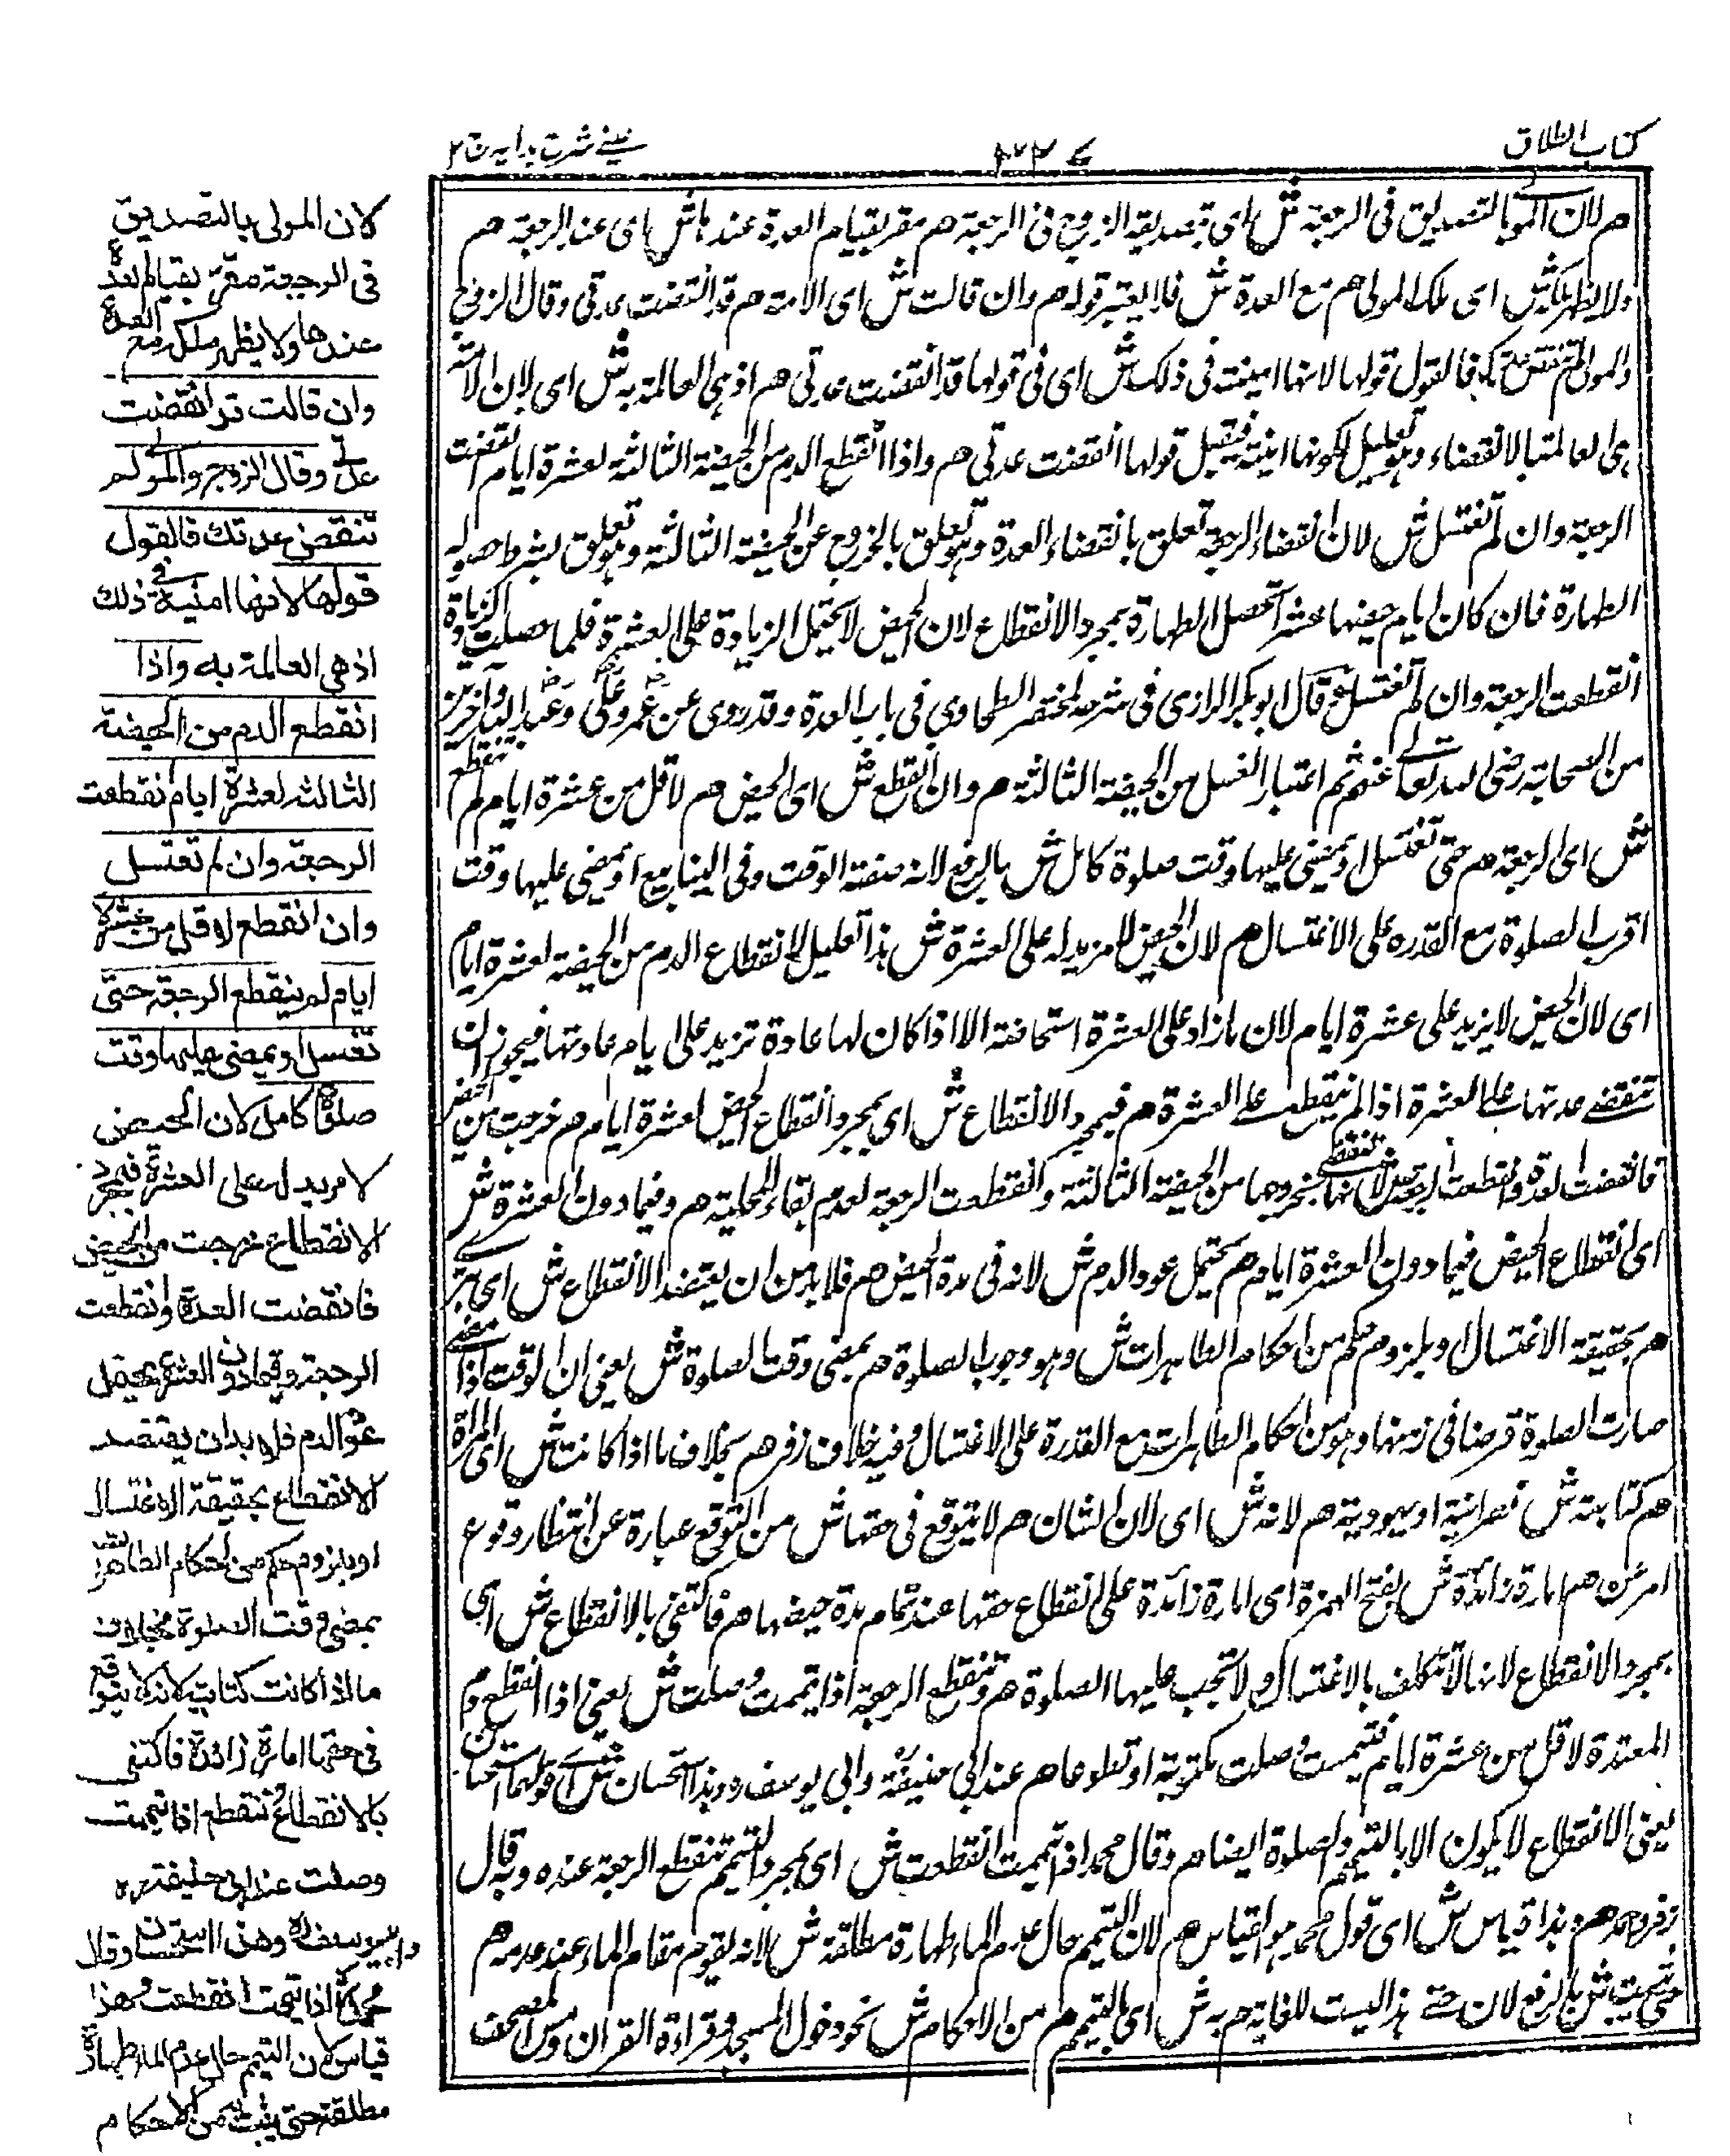 كتاب الطلاق
عينى شرح هدايه ج ٢
م لان المولى بالتصديق فى الرجعة ش اى بتصديقه الزوج فى الرجعة هم مقر بقيام العدة عندها ش اى عند الرجعة هم
ولا يظهر ملكه ش اى ملك المولى هم مع العدة ش فلا يعتبر قوله هم وان قالت ش اى الامة هم قد انقضت عدتى وقال الزوج
والمولى لم تنقض عدتك فالقول قولها لانها امينة فى ذلك ش اى فى قولها قد انقضت عدتى هم اذ هى العالمة به ش اى لان الامة
هى العالمة بالانقضاء وهو تعليل لكونها امينة فيقبل قولها انقضت عدتى هم واذا انقطع الدم من الحيضة الثالثة لعشرة ايام انقطعت
الرجعة وان لم تغتسل ش لان انقضاء الرجعة تعلق بانقضاء العدة وهو تعلق بالخروج عن الحيضة الثالثة وهو تعلق بشرط حصول
الطهارة فان كان ايام حيضها عشرا تحصل الطهارة بمجرد الانقطاع لان الحيض لا يحتمل الزيادة على العشرة فلما حصلت
انقطعت الرجعة وان لم تغتسل وقال ابو بكر الرازى فى شرحه لمختصر الطحاوى فى باب العدة وقد روى عن عمر وعلى وعبد الله وآخرين
من الصحابة رضى الله تعالى عنهم ثم اعتبار الغسل من الحيضة الثالثة هم وان انقطع ش اى الحيض هم لاقل من عشرة ايام لم تنقطع
ش اى الرجعة هم حتى تغتسل او يمضى عليها وقت صلوة كامل ش بالرفع لانه صفة الوقت وفى الينابيع او يمضى عليها وقت
اقرب الصلوة مع القدرة على الاغتسال هم لان الحيض لا مزيد له على العشرة ش هذا تعليل لانقطاع الدم من الحيضة لعشرة ايام
اى لان الحيض لا يزيد على عشرة ايام لان ما زاد على العشرة استحاضة الا اذا كان لها عادة تزيد على ايام عادتها فيجوز ان
تنقضى عدتها على العشرة اذا لم ينقطع على العشرة هم فبمجرد الانقطاع ش اى بمجرد انقطاع الحيض لعشرة ايام هم خرجت من الحيض
فانقضت العدة وانقطعت الرجعة ش لانها تنقضى بخروجها من الحيضة الثالثة وانقطعت الرجعة لعدم بقاء المحلية هم وفيما دون العشرة ش
اى انقطاع الحيض فيما دون العشرة ايام هم يحتمل عود الدم ش لانه فى مدة الحيض هم فلا بد من ان يعتضد الانقطاع ش اى
هم بحقيقة الاغتسال او بلزوم حكم من احكام الطاهرات ش وهو وجوب الصلوة هم بمضى وقت الصلوة ش يعنى ان الوقت اذا مضى
صارت الصلوة فرضا فى ذمتها وهو من احكام الطاهرات مع القدرة على الاغتسال وفيه خلاف زفر هم بخلاف ما اذا كانت ش اى المرأة
هم كتابية ش نصرانية او يهودية هم لانه ش اى لان الشان هم لا يتوقع فى حقها ش من التوقع عبارة عن انتظار وقوع
امر عن هم امارة زائدة ش بفتح الهمزة اى امارة زائدة على انقطاع حقها عند تمام مدة حيضها هم فاكتفى بالانقطاع ش اى
بمجرد الانقطاع لانها لا تكلف بالاغتسال ولا تجب عليها الصلوة هم وتنقطع الرجعة اذا تيممت وصلت ش يعنى اذا انقطع دم
المعتدة لاقل من عشرة ايام فتيممت وصلت مكتوبة او تطوعا هم عند ابى حنيفة وابى يوسف ره وهذا استحسان ش اى قولهما استحسان
يعنى الانقطاع لا يكون الا بالتيمم والصلوة ايضا هم وقال محمد اذا تيممت انقطعت ش اى بمجرد التيمم تنقطع الرجعة عنده وبه قال
زفر واحمد هم وهذا قياس ش اى قول محمد هو القياس هم لان التيمم حال عدم الماء طهارة مطلقة ش لانه يقوم مقام الماء عند عدمه هم
حتى يثبت ش بالرفع لان حتى هذا ليست للغاية هم به ش اى بالتيمم هم من الاحكام ش نحو دخول المسجد وقراءة القران ومس المصحف
لان المولى بالتصديق
فى الرجعة مقر بقيام العدة
عندها ولا يظهر ملكه مع العدة
وان قالت قد انقضت
عدتى وقال الزوج والمولى لم
تنقضى عدتك فالقول
قولها لانها امينة فى ذلك
اذ هى العالمة به واذا
انقطع الدم من الحيضة
الثالثة لعشرة ايام انقطعت
الرجعة وان لم تغتسل
وان انقطع لاقل من عشرة
ايام لم ينقطع الرجعة حتى
تغتسل او يمضى عليها وقت
صلوة كامل لان الحيض
لا مزيد له على العشرة فبمجرد
الانقطاع خرجت من الحيض
فانقضت العدة وانقطعت
الرجعة وفيما دون العشرة يحتمل
عود الدم فلا بد ان يعتضد
الانقطاع بحقيقة الاغتسال
او بلزوم حكم من احكام الطاهرات
بمضى وقت الصلوة بخلاف
ما اذا كانت كتابية لانه لا يتوقع
فى حقها امارة زائدة فاكتفى
بالانقطاع وتنقطع اذا تيممت
وصلت عند ابى حنيفة ره
وابى يوسف ره وهذا استحسان وقال
محمد اذا تيممت انقطعت وهذا
قياس لان التيمم حال عدم الماء طهارة
مطلقة حتى يثبت به من الاحكام